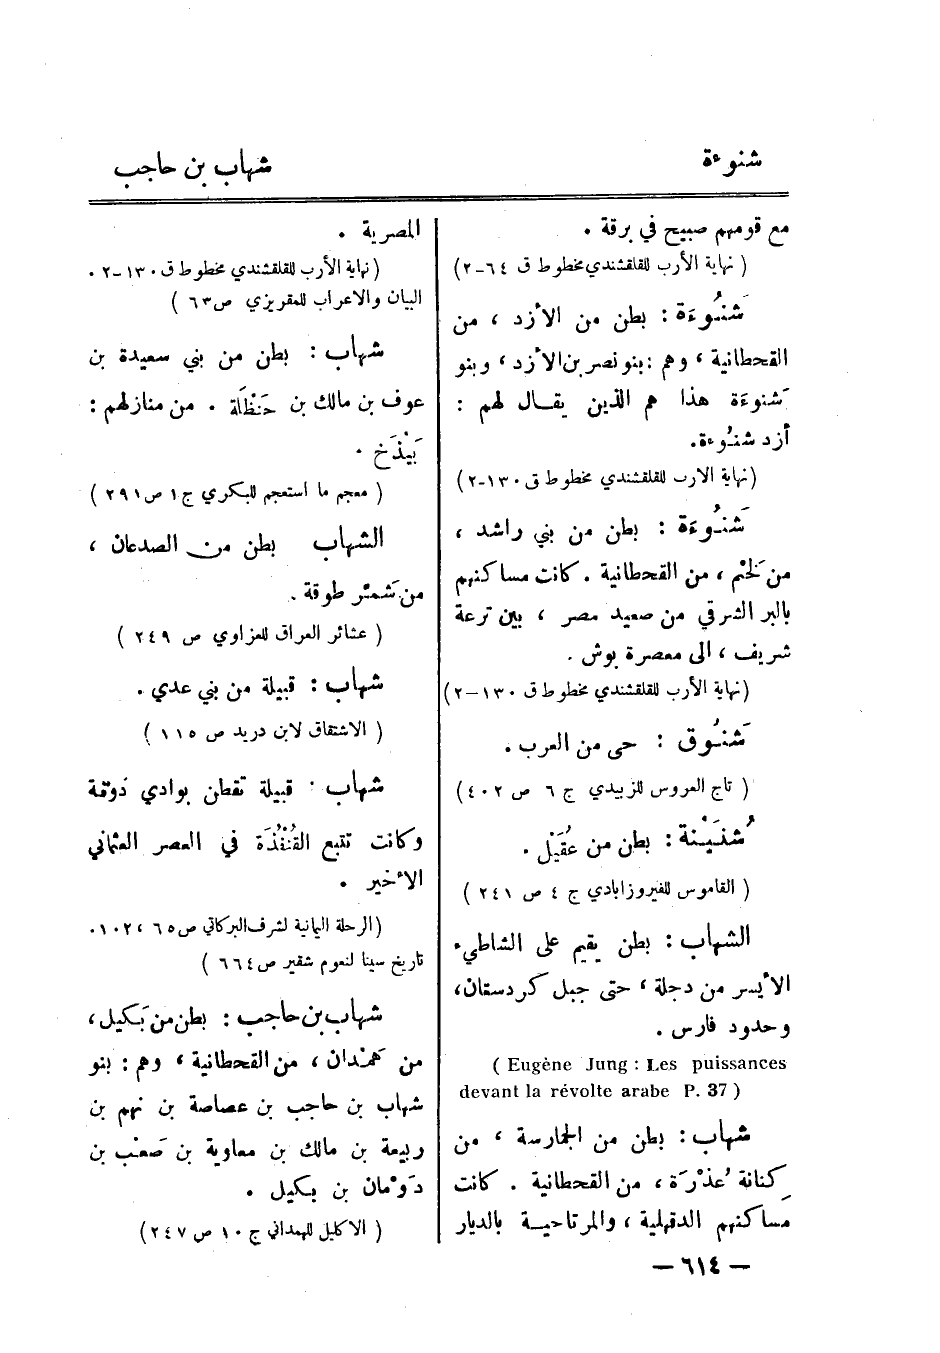 شنوءة
شهاب بن حاجب
مع قومهم صبيح في برقة .
( نهاية الأرب للقلقشندي مخطوط ق ٦٤–٢)
شَنُوءَة : بطن من الأزد ، من
القحطانية ، وهم : بنو نصر بن الأزد ، وبنو
شنوءَة هذا هم الذين يقال لهم :
أزد شنُوءة.
(نهاية الارب للقلقشندي مخطوط ق ١٣٠–٢)
شَنُوءَة : بطن من بني راشد ،
من لَخْم ، من القحطانية . كانت مساكنهم
بالبر الشرقي من صعيد مصر ، بين ترعة
شريف ، الى معصرة بوش .
(نهاية الأرب للقلقشندي مخطوط ق ١٣٠–٢)
شَنُوق : حى من العرب .
( تاج العروس للزبيدي ج ٦ ص ٤٠٢)
شُنَيْنَة : بطن من عُقَيْل .
( القاموس للفيروزابادي ج ٤ ص ٢٤١ )
الشهاب : بطن يقيم على الشاطيء
الأيسر من دجلة ، حتى جبل كردستان،
وحدود فارس .
( Eugène Jung : Les puissances
devant la révolte arabe P. 37 )
شهاب : بطن من الجمارسة ، من
كنانة عُذْرَة ، من القحطانية . كانت
مساكنهم الدقهلية ، والمرتاحية بالديار
المصرية .
(نهاية الأرب للقلقشندي مخطوط ق ١٣٠–٢ .
البيان والاعراب للمقريزي ص ٦٣ )
شهاب : بطن من بني سعيدة بن
عوف بن مالك بن حَنْظَلَة . من منازلهم :
بَيْذَخ .
( معجم ما استعجم للبكري ج ١ ص ٢٩١ )
الشهاب بطن من الصدعان ،
من شَمَّر طوقة .
( عشائر العراق للعزاوي ص ٢٤٩ )
شهاب : قبيلة من بني عدي .
( الاشتقاق لابن دريد ص ١١٥ )
شهاب : قبيلة تقطن بوادي ذَوقة
وكانت تتبع القُنْفُذَة في العصر العثماني
الأخير .
(الرحلة اليمانية لشرف البركاتي ص ٦٥ ، ١٠٢ .
تاريخ سينا لنعوم شقير ص ٦٦٤ )
شهاب بن حاجب : بطن من بَكيل،
من هَمْدان ، من القحطانية ، وهم : بنو
شهاب بن حاجب بن عصاصة بن نهم بن
ربيعة بن مالك بن معاوية بن صَعْب بن
دَوْمان بن بكيل .
( الاكليل للهمداني ج ١٠ ص ٢٤٧ )
— ٦١٤ —